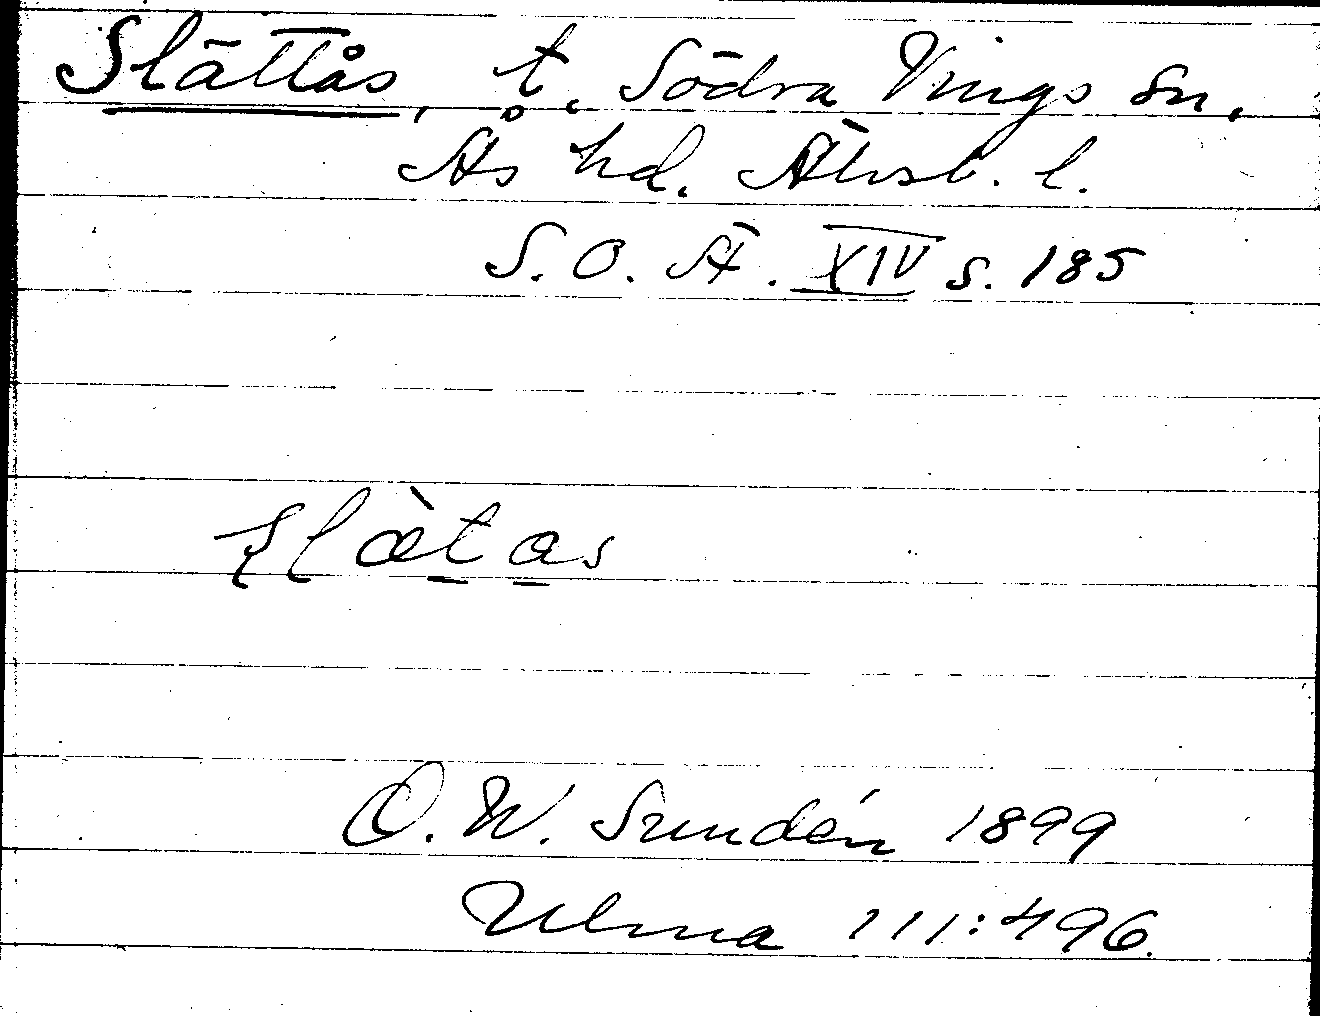 Slättås, t. Södra Vings sn,
Ås hd. Älvsb. l.
S. O. Ä. XIV s. 185
ʂlæ̀tas
O. W. Sundén 1899
Ulma 111:496.